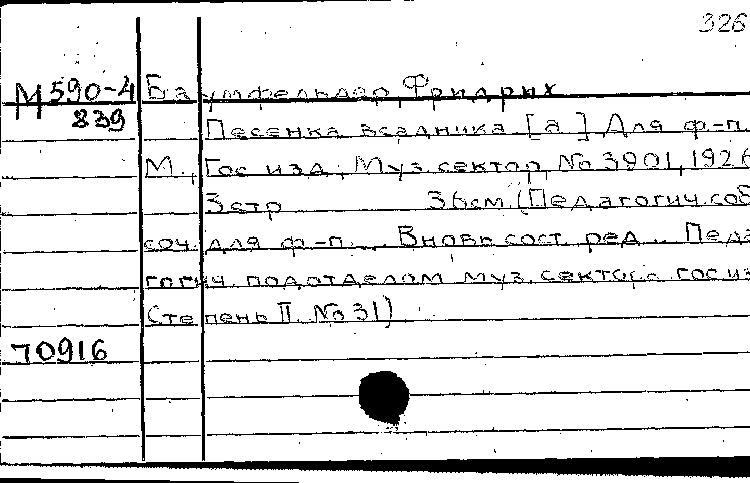 326
М 590-4 Баумфельдер, Фридрих
839
Песенка всадника [a]. Для ф.-п.
М., Гос. изд., Муз. сектор, No 3901, 1926
3 стр 36 см. (Педагогич. соб
соч. для ф.-п... Вновь сост. ред... Педа
гогич. подотделом муз. сектора гос. из
Степень II. No 31)
70916